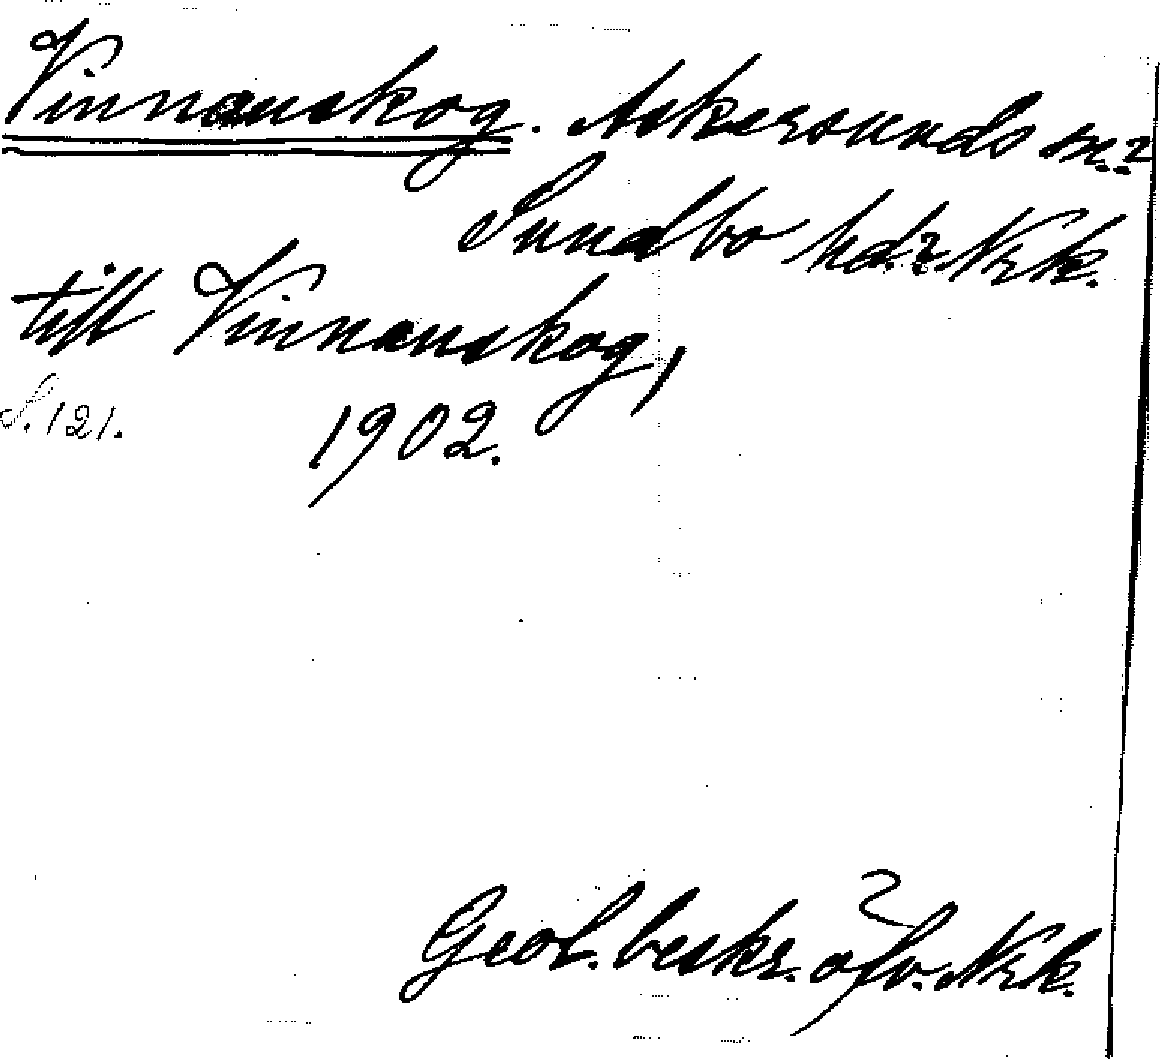 Vinnanskog. Askersunds sn.?
Sundbo hd.? Nrk.
till Vinnanskog,
S. 121. 1902.
Geol. beskr. öfv. Nrk.